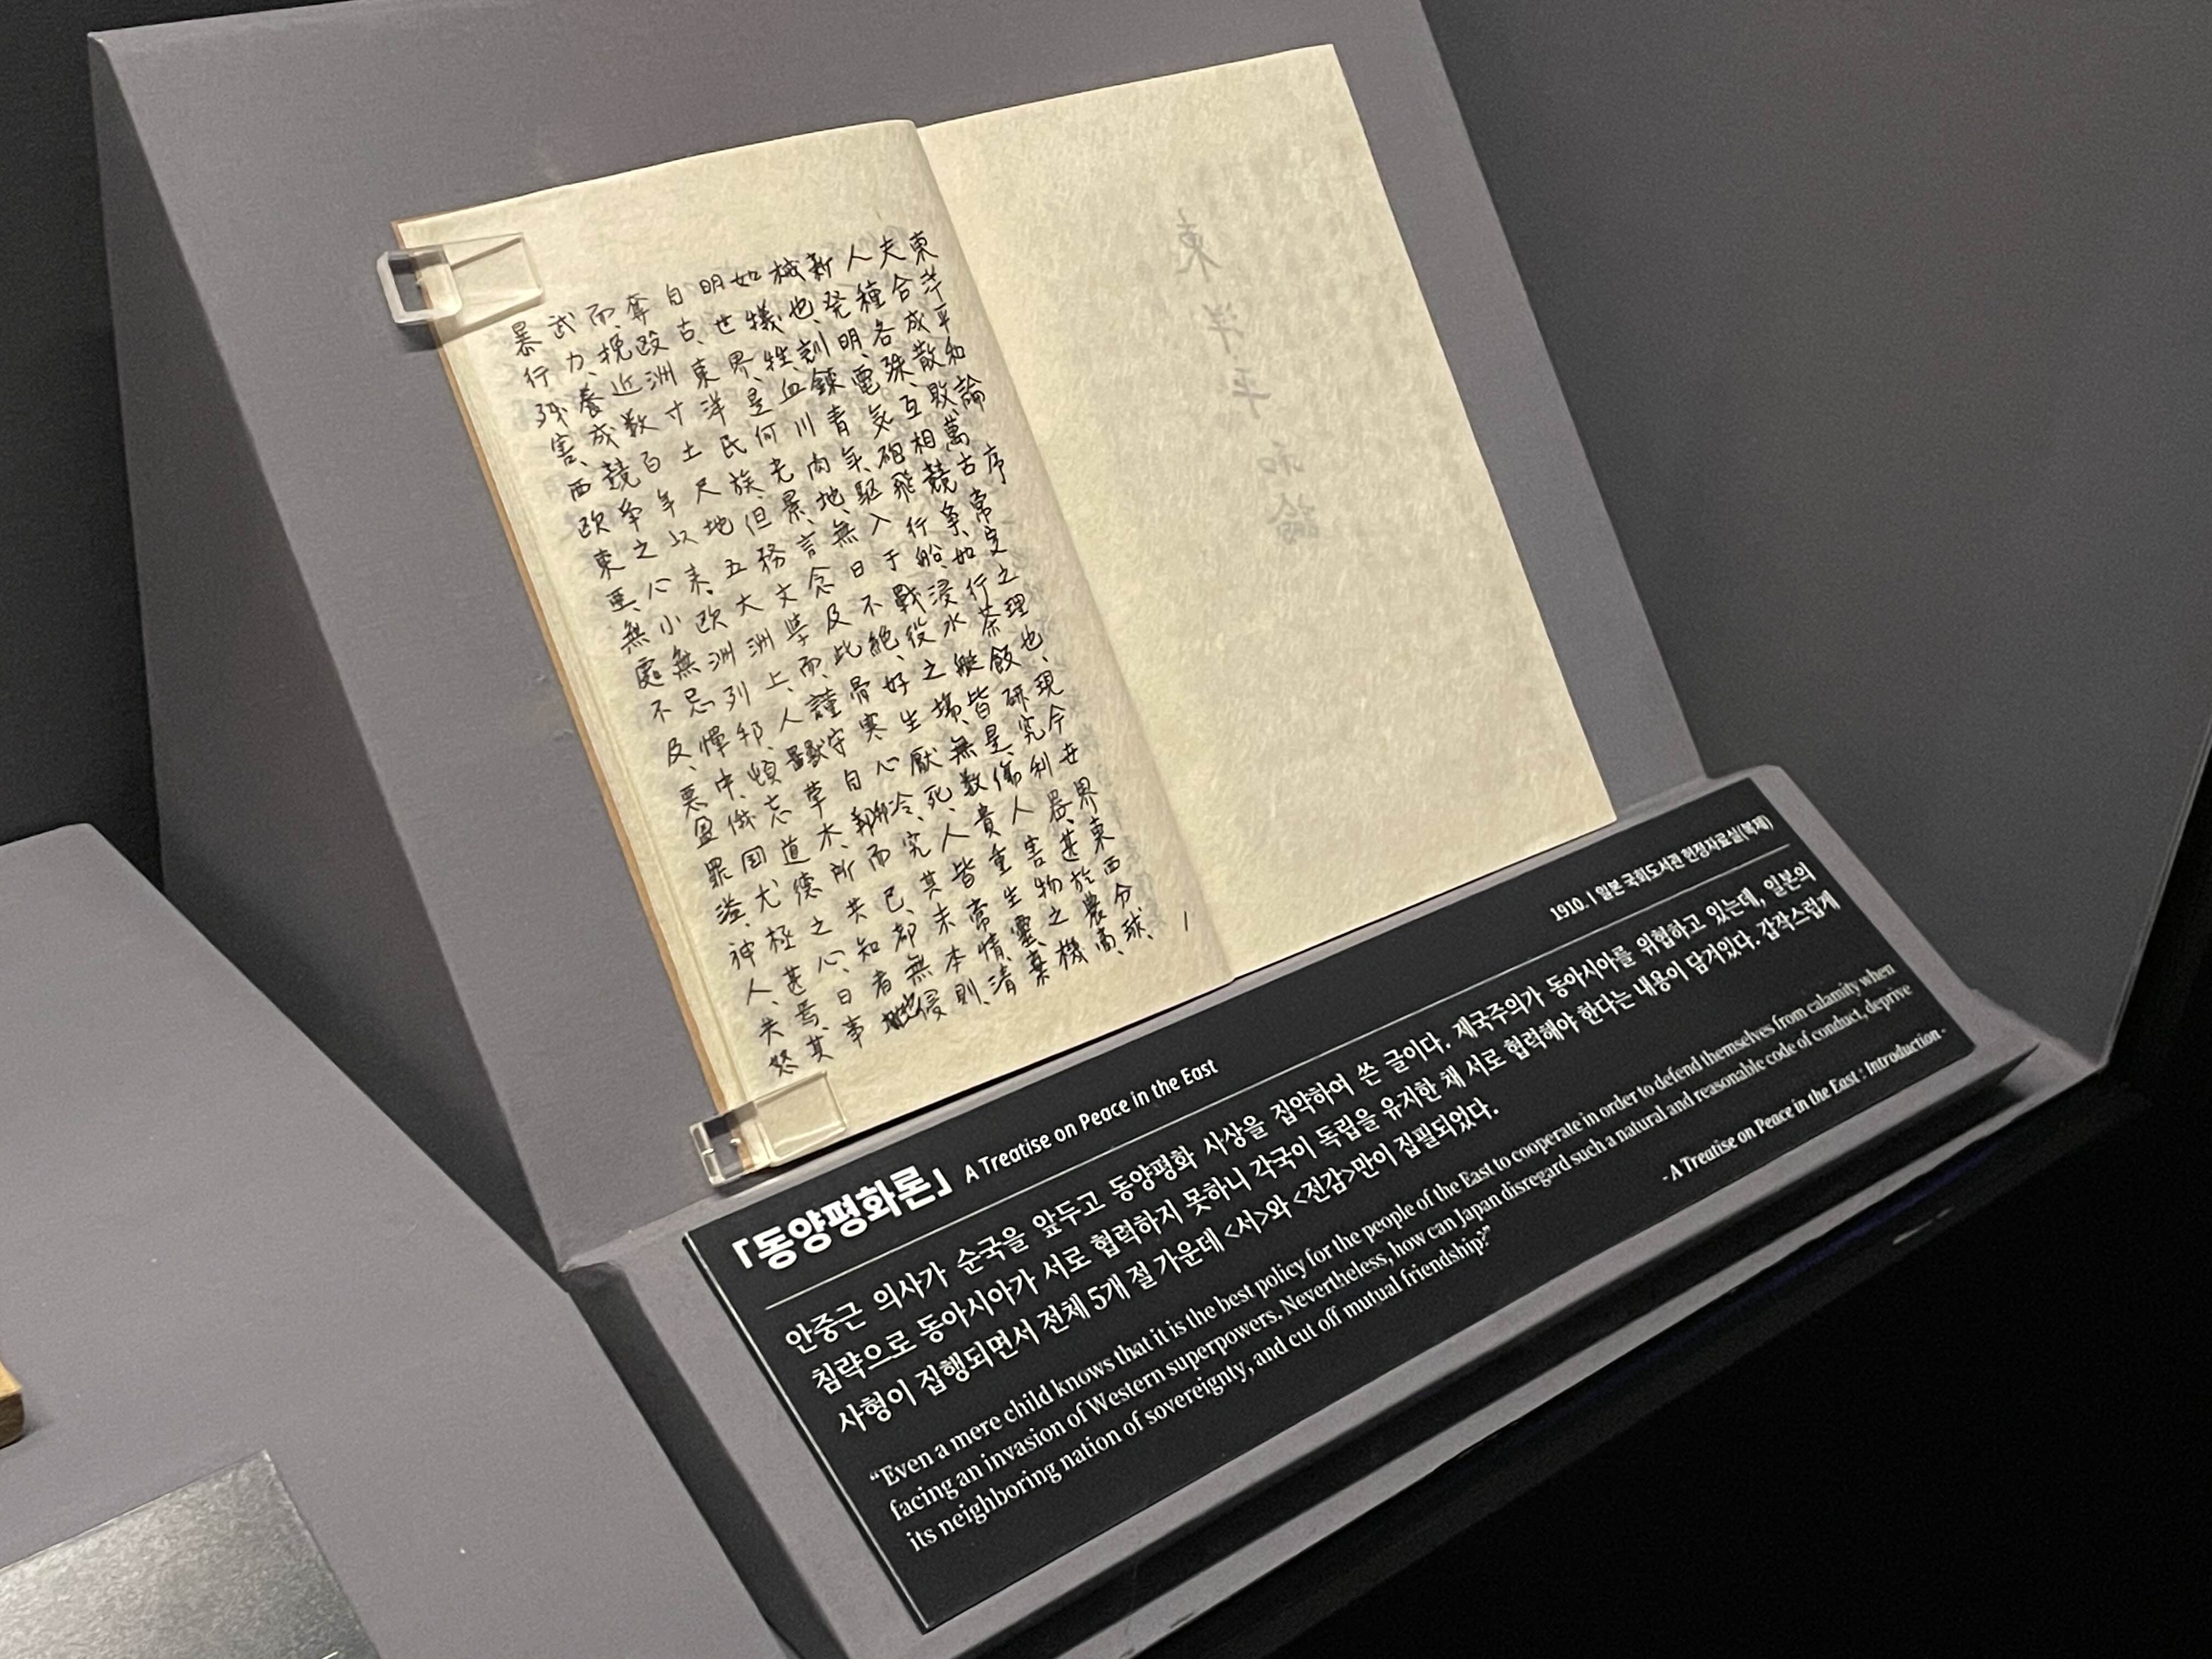 東洋平和論
東洋平和論 序
夫合成散敗、萬古常定之理也、現今世界東西分球、
人種各殊、互相競争、如行茶飯、研究利器、甚於農商、
新発明、電気砲、飛行船、浸水艇、皆是傷人害物之機
械也、訓鍊青年、駆入于戰役之場、無数貴重生靈、棄
如犠牲、血川肉地、無日不絶、好生厭死、人皆常情、清
明世界、是何光景、言念及此、骨寒心冷、究其末本、則
自古、東洋民族、但務文学、而謹守自邦而已、都無侵
奪欧洲寸土尺地、五大洲上、人獣草木、所共知者也
而、挽近数百年以来、欧洲列邦、頓忘道徳之心、日事
武力、養成競争之心、小無忌憚、中、俄国尤極甚焉、其
暴行残害、西欧東亜、無處不及、悪盈罪溢、神人失怒
1
「동양평화론」 A Treatise on Peace in the East 1910. | 일본 국회도서관 헌정자료실(복제)
안중근 의사가 순국을 앞두고 동양평화 사상을 집약하여 쓴 글이다. 제국주의가 동아시아를 위협하고 있는데, 일본의
침략으로 동아시아가 서로 협력하지 못하니 각국이 독립을 유지한 채 서로 협력해야 한다는 내용이 담겨있다. 갑작스럽게
사형이 집행되면서 전체 5개 절 가운데 <서>와 <전감>만이 집필되었다.
“Even a mere child knows that it is the best policy for the people of the East to cooperate in order to defend themselves from calamity when
facing an invasion of Western superpowers. Nevertheless, how can Japan disregard such a natural and reasonable code of conduct, deprive
its neighboring nation of sovereignty, and cut off mutual friendship?”
- A Treatise on Peace in the East : Introduction -